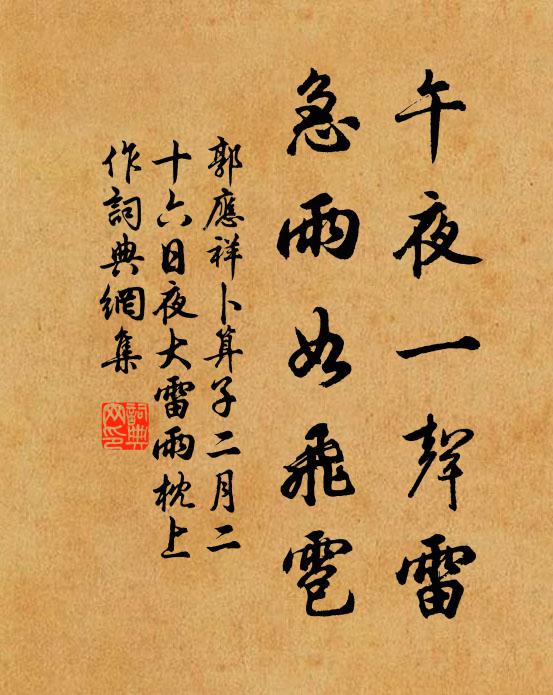 午夜一聲雷
急雨如飛雹
郭應祥卜算子二月二
十六日夜大雷雨枕上
作詞典網集
詞典
網印